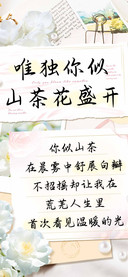 唯独你似
山茶花盛开
你似山茶
在晨雾中舒展白瓣
不招摇却让我在
荒芜人生里
首次看见温暖的光